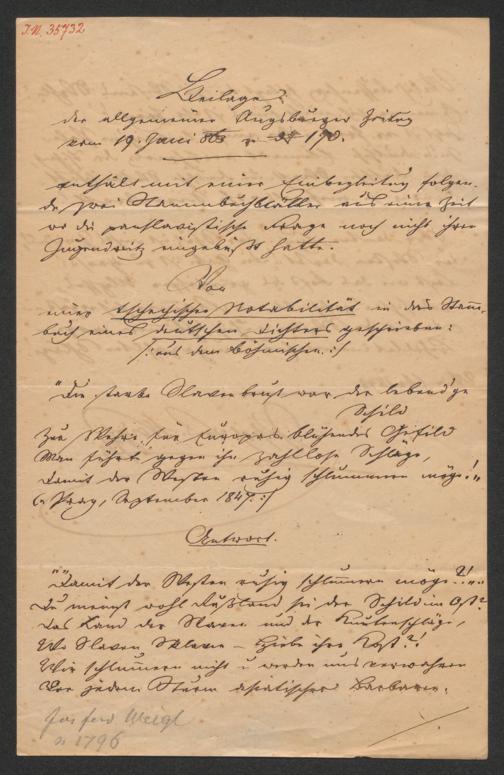 I.N. 35732
Beilage
der allgemeinen Augsburger Zeitung
vom 19. Juni 863 170.
enthält mit einer Einbegleitung folgen-
de zwei Stammbuchblätter aus einer Zeit
wo die panslavistische Frage noch nicht ihren
Jugendreitz eingebüßt hatte.
Von
einer tschechischen Notabilität in das Stamm-
buch eines deutschen Dichters geschrieben:
/: aus dem Böhmischen. :/
"Die starke Slavenbrust war der lebend'ge
Schild
Zur Wehre für Europas blühendes Gefild
Man führt gegen ihn zahllose Schläge,
Damit der Westen ruhig schlummern möge!"
Prag, September 1847. :/
Antwort.
""Damit der Westen ruhig schlummern möge?!""
Du meinst wohl Rußland sei der Schild im Ost?
Das Land der Slaven und der Knutenschläge,
Wo Slaven Sklaven – Hiebe ihre Kost?!
Wir schlummern nicht u werden uns verwahren
Vor jedem Sturm asiatischer Barbaren.
Jos ferd Weigl
1796